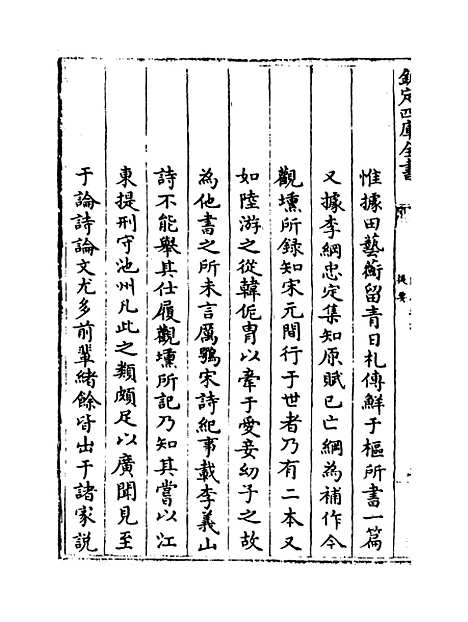 欽定四庫全書
提要
惟據田藝蘅留青日札傳鮮于樞所書一篇
又據李綱忠定集知原賦已亡綱為補作今
觀壎所録知宋元間行于世者乃有二本又
如陸游之從韓侂胄以牽于愛妾幼子之故
為他書之所未言厲鶚宋詩紀事載李義山
詩不能舉其仕履觀壎所記乃知其嘗以江
東提刑守池州凡此之類頗足以廣聞見至
于論詩論文尤多前輩緒餘皆出于諸家説